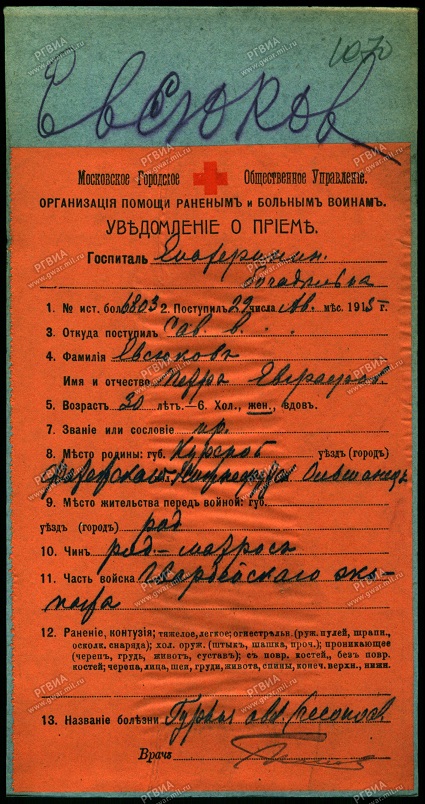 1070
Евсюков
Московское Городское Общественное Управленіе.
ОРГАНИЗАЦІЯ ПОМОЩИ РАНЕНЫМЪ и БОЛЬНЫМЪ ВОИНАМЪ.
УВѢДОМЛЕНІЕ О ПРІЕМѢ.
Госпиталь Екатеринин.
богадѣльна
1. № ист. бол. 6803 2. Поступилъ 29 числа Ав. мѣс. 1915 г.
3. Откуда поступилъ Сав. в.
4. Фамилія Евсюковъ
Имя и отчество
5. Возрастъ 30 лѣтъ.—6. Хол., жен., вдовъ.
7. Званіе или сословіе кр.
8. Мѣсто родины: губ. Курской уѣздъ (городъ)
9. Мѣсто жительства передъ войной: губ.
уѣздъ (городъ) ряд
10. Чинъ ряд-матросъ
11. Часть войска Гвардейскаго эки-
пажа
12. Раненіе, контузія; тяжелое, легкое; огнестрѣльн. (руж. пулей, шрапн.,
осколк. снаряда); хол. оруж. (штыкъ, шашка, проч.); проникающее
(черепъ, грудь, животъ, суставъ); съ повр. костей, безъ повр.
костей; черепа, лица, шеи, груди, живота, спины, конеч. верхн., нижн.
13. Названіе болѣзни
Врачъ
РГВИА
www.gwar.mil.ru